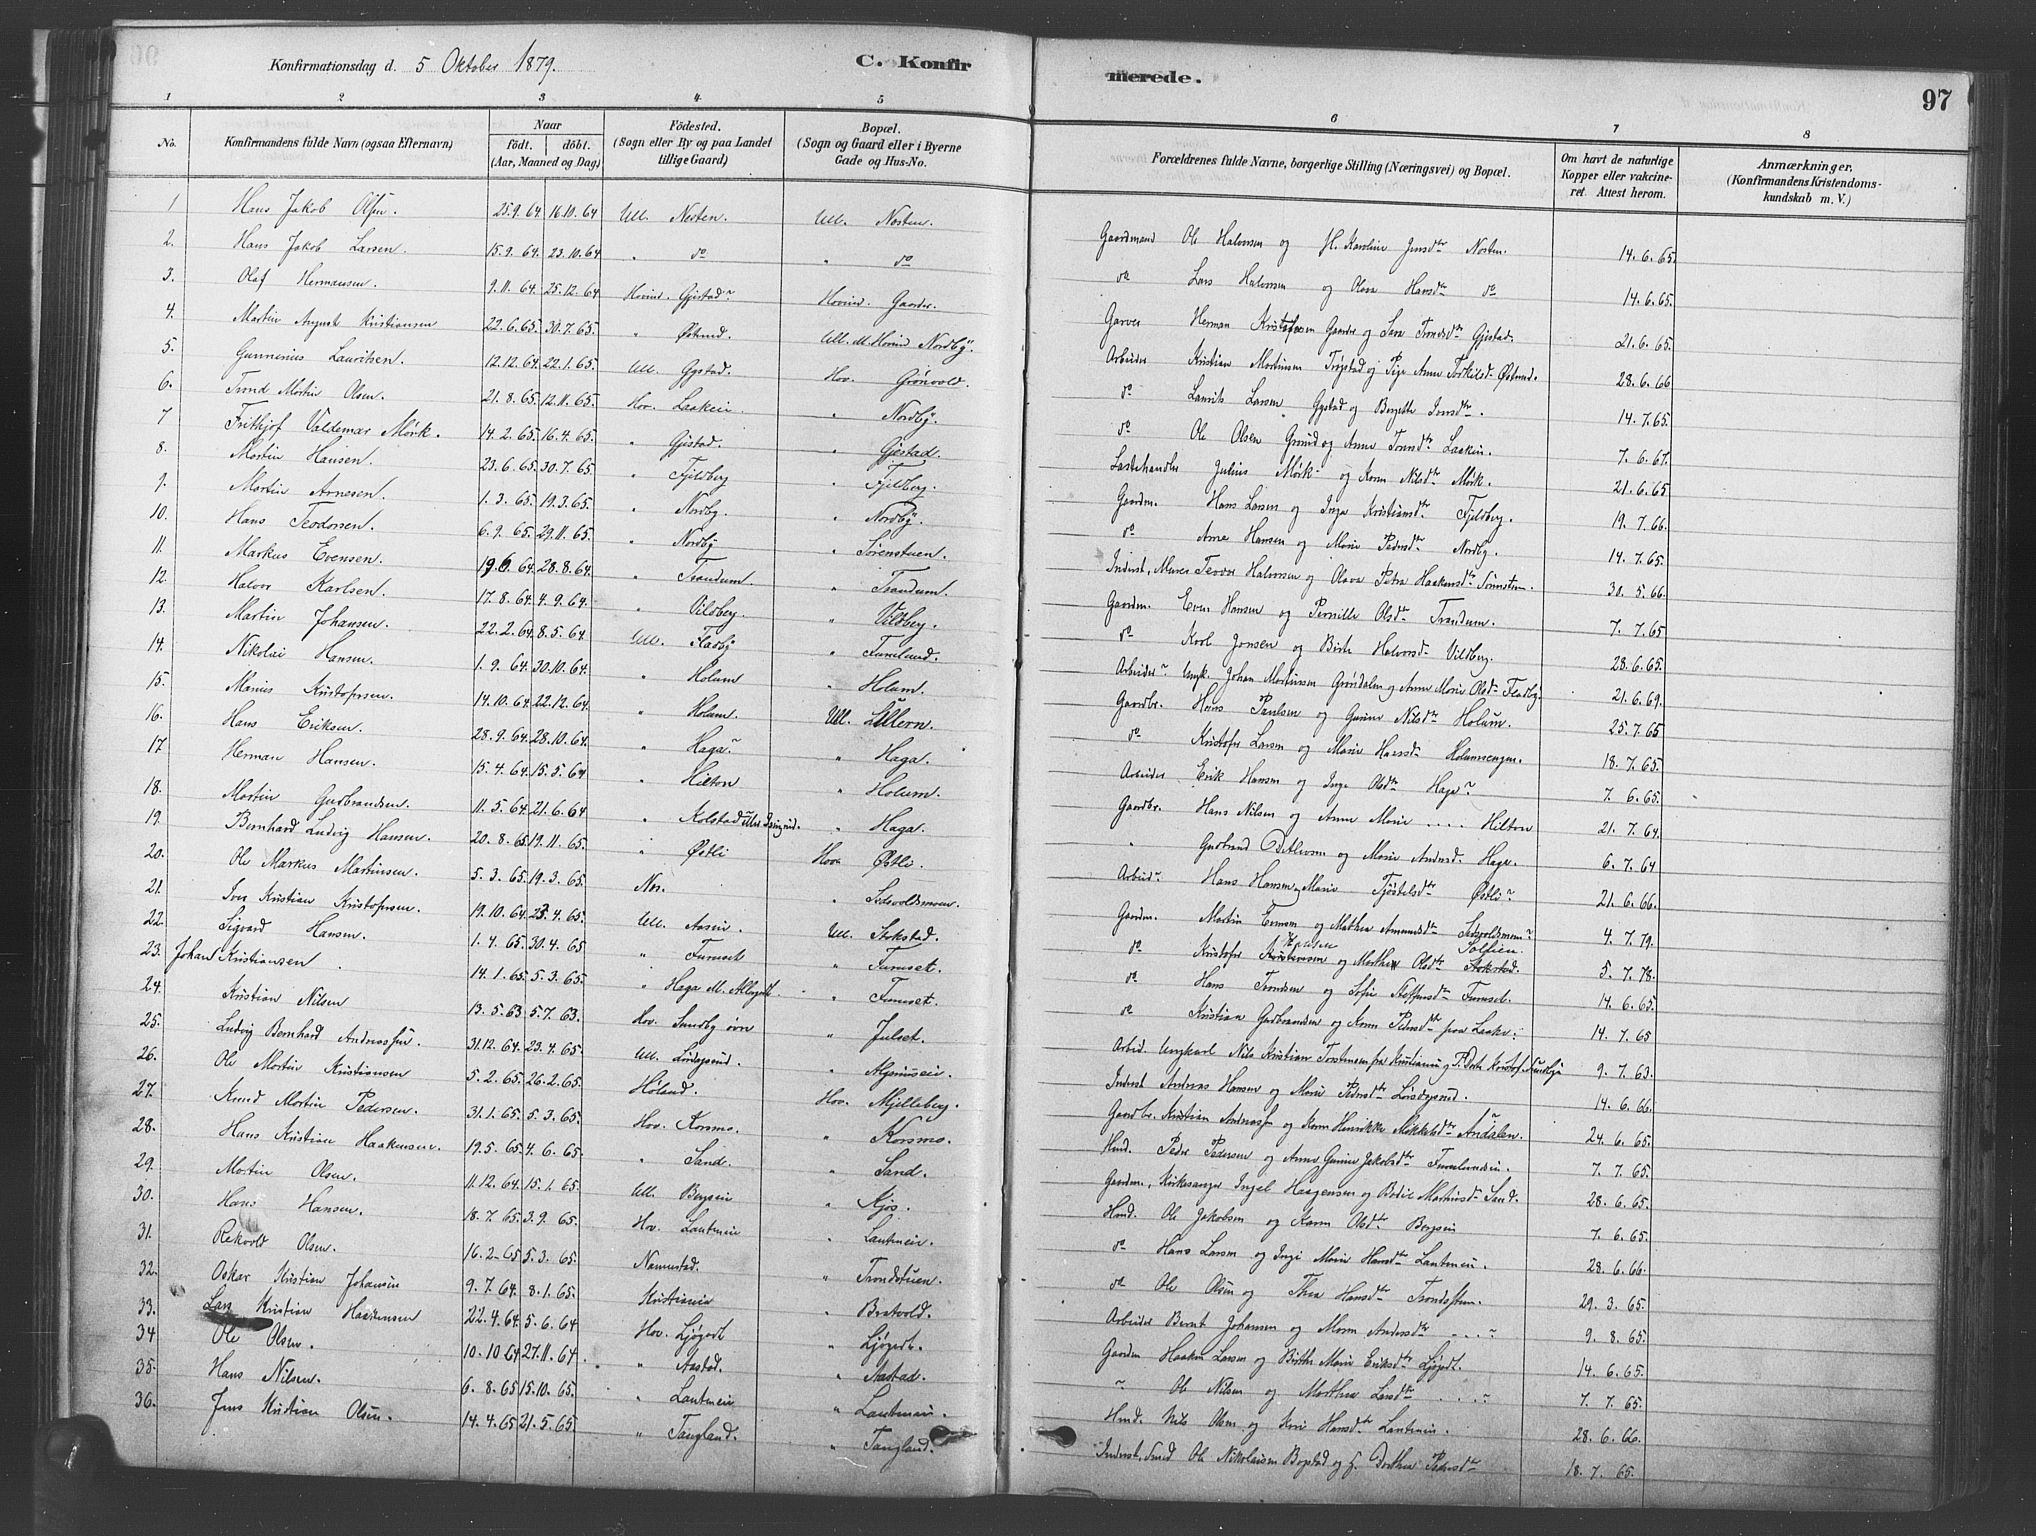 Konfirmationsdag d. 5 Oktober 1879.
C. Konfirmerede.
97
1 2 3 4 5 6 7 8
No.
Konfirmandens fulde Navn (ogsaa Efternavn)
Naar
født. døbt.
(Aar, Maaned og Dag)
Fødested.
(Sogn eller By og paa Landet tillige Gaard)
Bopæl.
(Sogn og Gaard eller i Byerne Gade og Hus-No.
Forældrenes fulde Navne, borgerlige Stilling (Næringsvei) og Bopæl.
Om havt de naturlige Kopper eller vakcineret. Attest herom.
Anmærkninger.
(Konfirmandens Kristendomskundskab m. V.)
1 Hans Jakob Olsen. 25.9.64. 16.10.64 Ull. Nosten. Ull. Nosten. Gaardmand Ole Halvorsen og H. Karoline Jensdtr Nosten. 14.6.65.
2. Hans Jakob Larsen. 15.9.64. 23.10.64 " do " do do Lars Halvorsen og Olava Hansdtr do 14.6.65.
3. Olaf Hermansen. 9.11.64. 25.12.64 Hovind. Gjestad Hovind. Gaarder. Garver Herman Kristofersen Gaarder og Sara Trondsdtr Gjestad. 21.6.65.
4. Martin August Kristiansen 22.6.65. 30.7.65. " Østmd. Ull. M. Hovind Nordby. Arbeider Kristian Mortinsen Trøgstad og Pige Anne Torkilsd. Østmd. 28.6.66
5. Gunnerius Lauritsen. 12.12.64. 22.1.65. Ull. Gystad. Hov. Grønvold. do Laurits Larsen Gystad og Bergette Iversdtr. 14.7.65.
6. Trond Martin Olsen. 21.8.65. 12.11.65. Hov. Laakeie " Nordby. do Ole Olsen Grønd og Anne Trondsdtr Laakeie. 7.6.67.
7 Frithjof Valdemar Mørk. 14.2.65. 16.4.65. " Gjestad. " Gjestad. Lastehandler Julius Mørk og Karen Nilsdtr Mørk. 21.6.65
8. Martin Hansen. 23.6.65. 30.7.65. " Fjeldberg " Fjeldberg. Gaardm. Hans Larsen og Inga Kristiansdtr Fjeldberg. 19.7.66.
9. Martin Arnesen. 1.3.65. 19.3.65. " Nordby. " Nordby. do Arne Hansen og Marie Pedersdtr Nordby. 14.7.65.
10. Hans Teodorsen. 6.9.65. 29.11.65. " Nordby " Sørenstuen. Inderst, Murer Teodor Halvorsen og Olava Petra Haakensdtr Sørnstuen. 30.5.66.
11. Markus Evensen. 19.6.64. 28.8.64. " Trandum. " Trandum. Gaardm. Even Hansen og Pernille Olsdtr Trandum. 7.7.65
12. Halvor Karlsen. 17.8.64. 4.9.64. " Vildberg. " Vildberg. do Karl Jonsen og Birte Halvorsdtr Vildberg. 28.6.65.
13. Martin Johansen. 22.2.64. 8.5.64. Ull. Fladby " Furulund. Arbeider Ungk. Johan Mortinsen Grøndalen og Anne Marie Olsdtr Fladby. 21.6.69.
14. Nikolai Hansen. 1.9.64. 30.10.64. " Holum " Holum. Gaardbr. Hans Paulsen og Gunine Nilsdtr Holum. 25.7.65
15. Marius Kristofersen. 14.10.64. 22.12.64. " Holum. Ull. Lillern. do Kristofer Larsen og Marie Hansdtr Holumsengen. 18.7.65.
16. Hans Eriksen. 28.9.64. 28.10.64. " Haga " Haga. Arbeider Erik Hansen og Inge Olsdtr Haga 7.6.65.
17 Herman Hansen. 15.4.64. 15.5.64 " Hilton " Holum. Gaardbr. Hans Nilsen og Anne Marie .... Hilton 21.7.64.
18. Martin Gudbrandsen. 11.5.64. 21.6.64 " Kolstad " Haga. " Gudbrand Detlevsen og Marie Andersd. Haga. 6.7.64
19. Bernhard Ludvig Hansen. 20.8.65. 19.11.65. " Østli Hov. Østli. Arbeid. Hans Hansen, Marie Fjøstelsdtr Østli 21.6.66.
20. Ole Markus Martinsen. 5.3.65. 19.3.65. Nes. " Sedvoldsmoen. Gaardm. Martin Evensen og Mathea Amundsdtr Sedvoldsmoen 4.7.79.
21. Iver Kristian Kristofersen. 19.10.64. 23.4.65. Ull. Aaseie. Ull. Stokstad. do Kristofer Hansen og Marthe Olsdtr Stokstad. 5.7.78.
22. Sigvard Hansen. 1.4.65. 30.4.65 " Furuset " Furuset. do Hans Trondsen og Sofie Steffensdtr Furuset. 14.6.65.
23. Johan Kristiansen. 14.1.65. 5.3.65. " Haga M. " Furuset. do Kristian Gudbrandsen og Karen Pedersdtr paa Laake. 14.7.65
24. Kristian Nilsen 13.5.63 5.7.63. Hov. Sundby øvre " Julset. Arbeid. Ungkarl Nils Kristian Torstensen fra Kristiania og P. Dorte Kristof. Sundby 9.7.63.
25. Ludvig Bernhard Andreassen. 31.12.64. 23.4.65. Ull. Lørdogsrud. " Algarimseie. Inderst Andreas Hansen og Marie Pedersdtr Lørdogsrud. 14.6.66.
26. Ole Martin Kristiansen 5.2.65. 26.2.65. Høland. Hov. Mjelleberg. Gaardbr. Kristian Andreassen og Karen Henrikke Mikkelsdtr Aadalen. 24.6.65.
27. Knud Martin Pedersen. 31.1.65. 5.3.65. Hov. Korsmo. " Korsmo. Husmd. Peder Pedersen og Anne Gunine Jakobsdtr Furulundseie. 7.7.65.
28. Hans Kristian Haakensen. 19.5.65. 4.6.65. " Sand. " Sand. Gaardm., Kirkesanger Ingel Haagensen og Bodil Mathiasdtr Sand. 28.6.65.
29. Martin Olsen. 11.12.64. 15.1.65. Ull. Bergseie " Kjos. Husmd. Ole Jakobsen og Karen Olsdtr Bergseie 7.6.65.
30. Hans Hansen. 18.7.65. 3.9.65. Hov. Lautneseie " Lautneseie. do Hans Larsen og Inge Marie Hansdtr Lautneseie. 28.6.66.
31. Rekvold Olsen. 16.2.65 5.3.65. Nannestad. " Trondstuen. do Ole Olsen og Thea Hansdtr Trondsstuen. 29.3.65.
32. Oskar Kristian Johansen 9.7.64. 8.1.65. Kristiania " Bratvold. Arbeider Bernt Johansen og Maren Andersdtr .... 9.8.65.
33. Lars Kristian Haakensen 22.4.64. 5.6.64 Hov. Ljøgodt " Ljøgodt. Gaardm Haaken Larsen og Birthe Marie Eriksdtr Ljøgodt. 14.6.65.
34 Ole Olsen. 10.10.64 27.11.64. " Aastad. " Aastad. " Ole Nilsen og Marthea Larsdtr .... 7.7.65.
35. Hans Nilsen. 6.8.65 15.10.65. " Lautneseie " Lautneseie. Husmd. Nils Olsen og Kari Hansdtr Lautneseie. 28.6.66.
36. Jens Kristian Olsen. 14.4.65 21.5.65. " Taugland. " Taugland. Inderst, Smed Ole Nikolaisen Bogstad og H. Dorthea Pedersdtr 18.7.65.